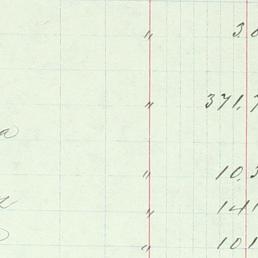 " 3.
" 371.7
a
" 10.3
" 141
" 101